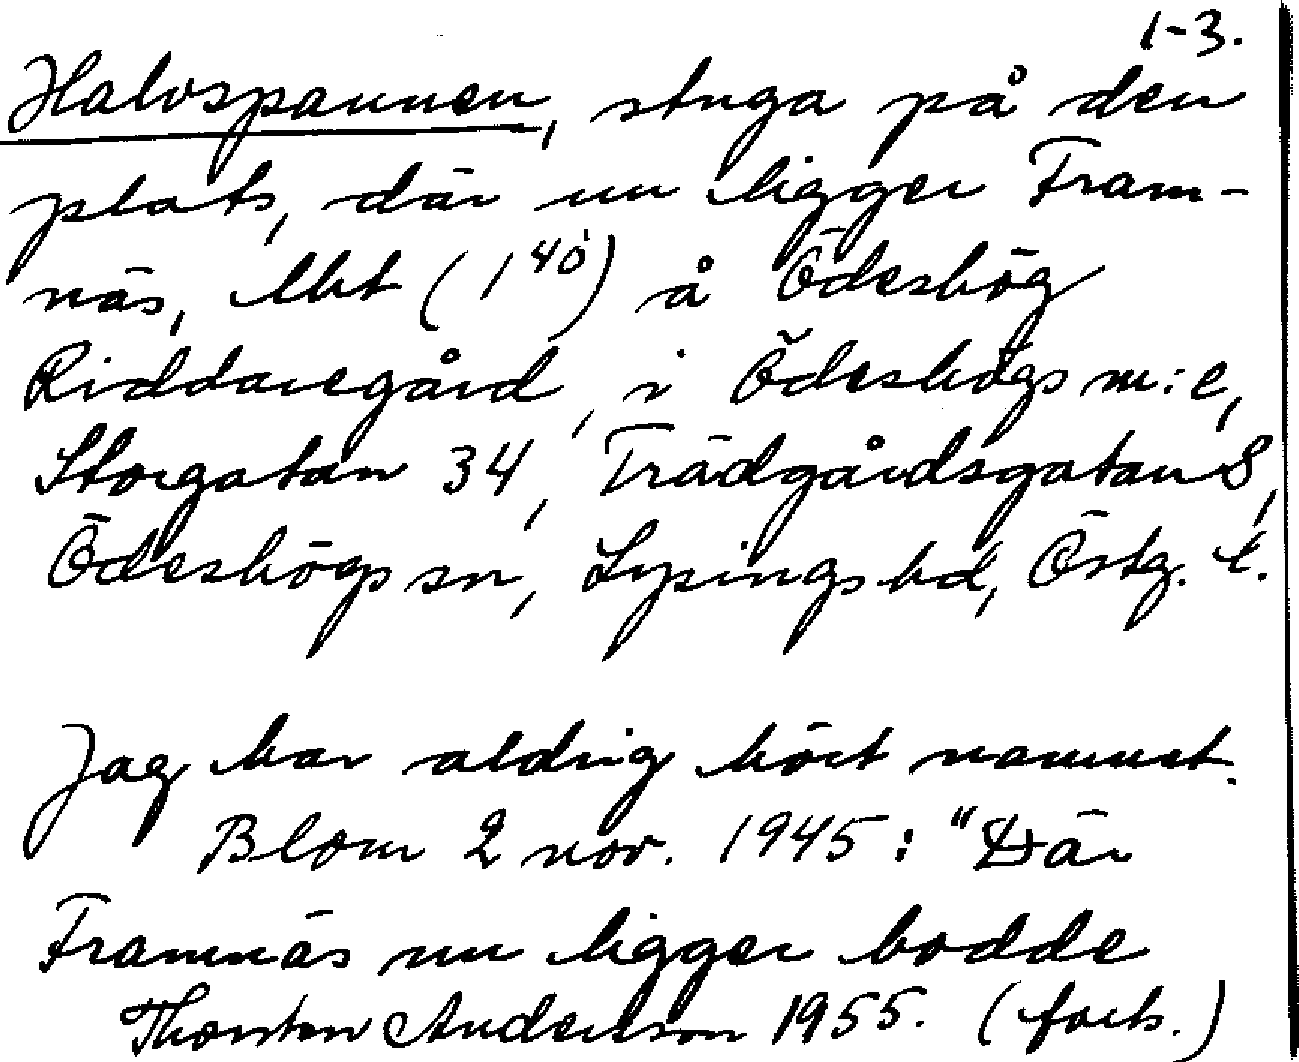 1-3.
Halvspannen, stuga på den
plats, där nu ligger Fram-
näs, lht (1⁴⁰) å Ödeshög
Riddaregård, i Ödeshögs m:e,
Storgatan 34, Trädgårdsgatan 8,
Ödeshögs sn, Lysings hd, Östg. l.
Jag har aldrig hört namnet.
Blom 2 nov. 1945: "Där
Framnäs nu ligger bodde
Thorsten Andersson 1955. (forts.)